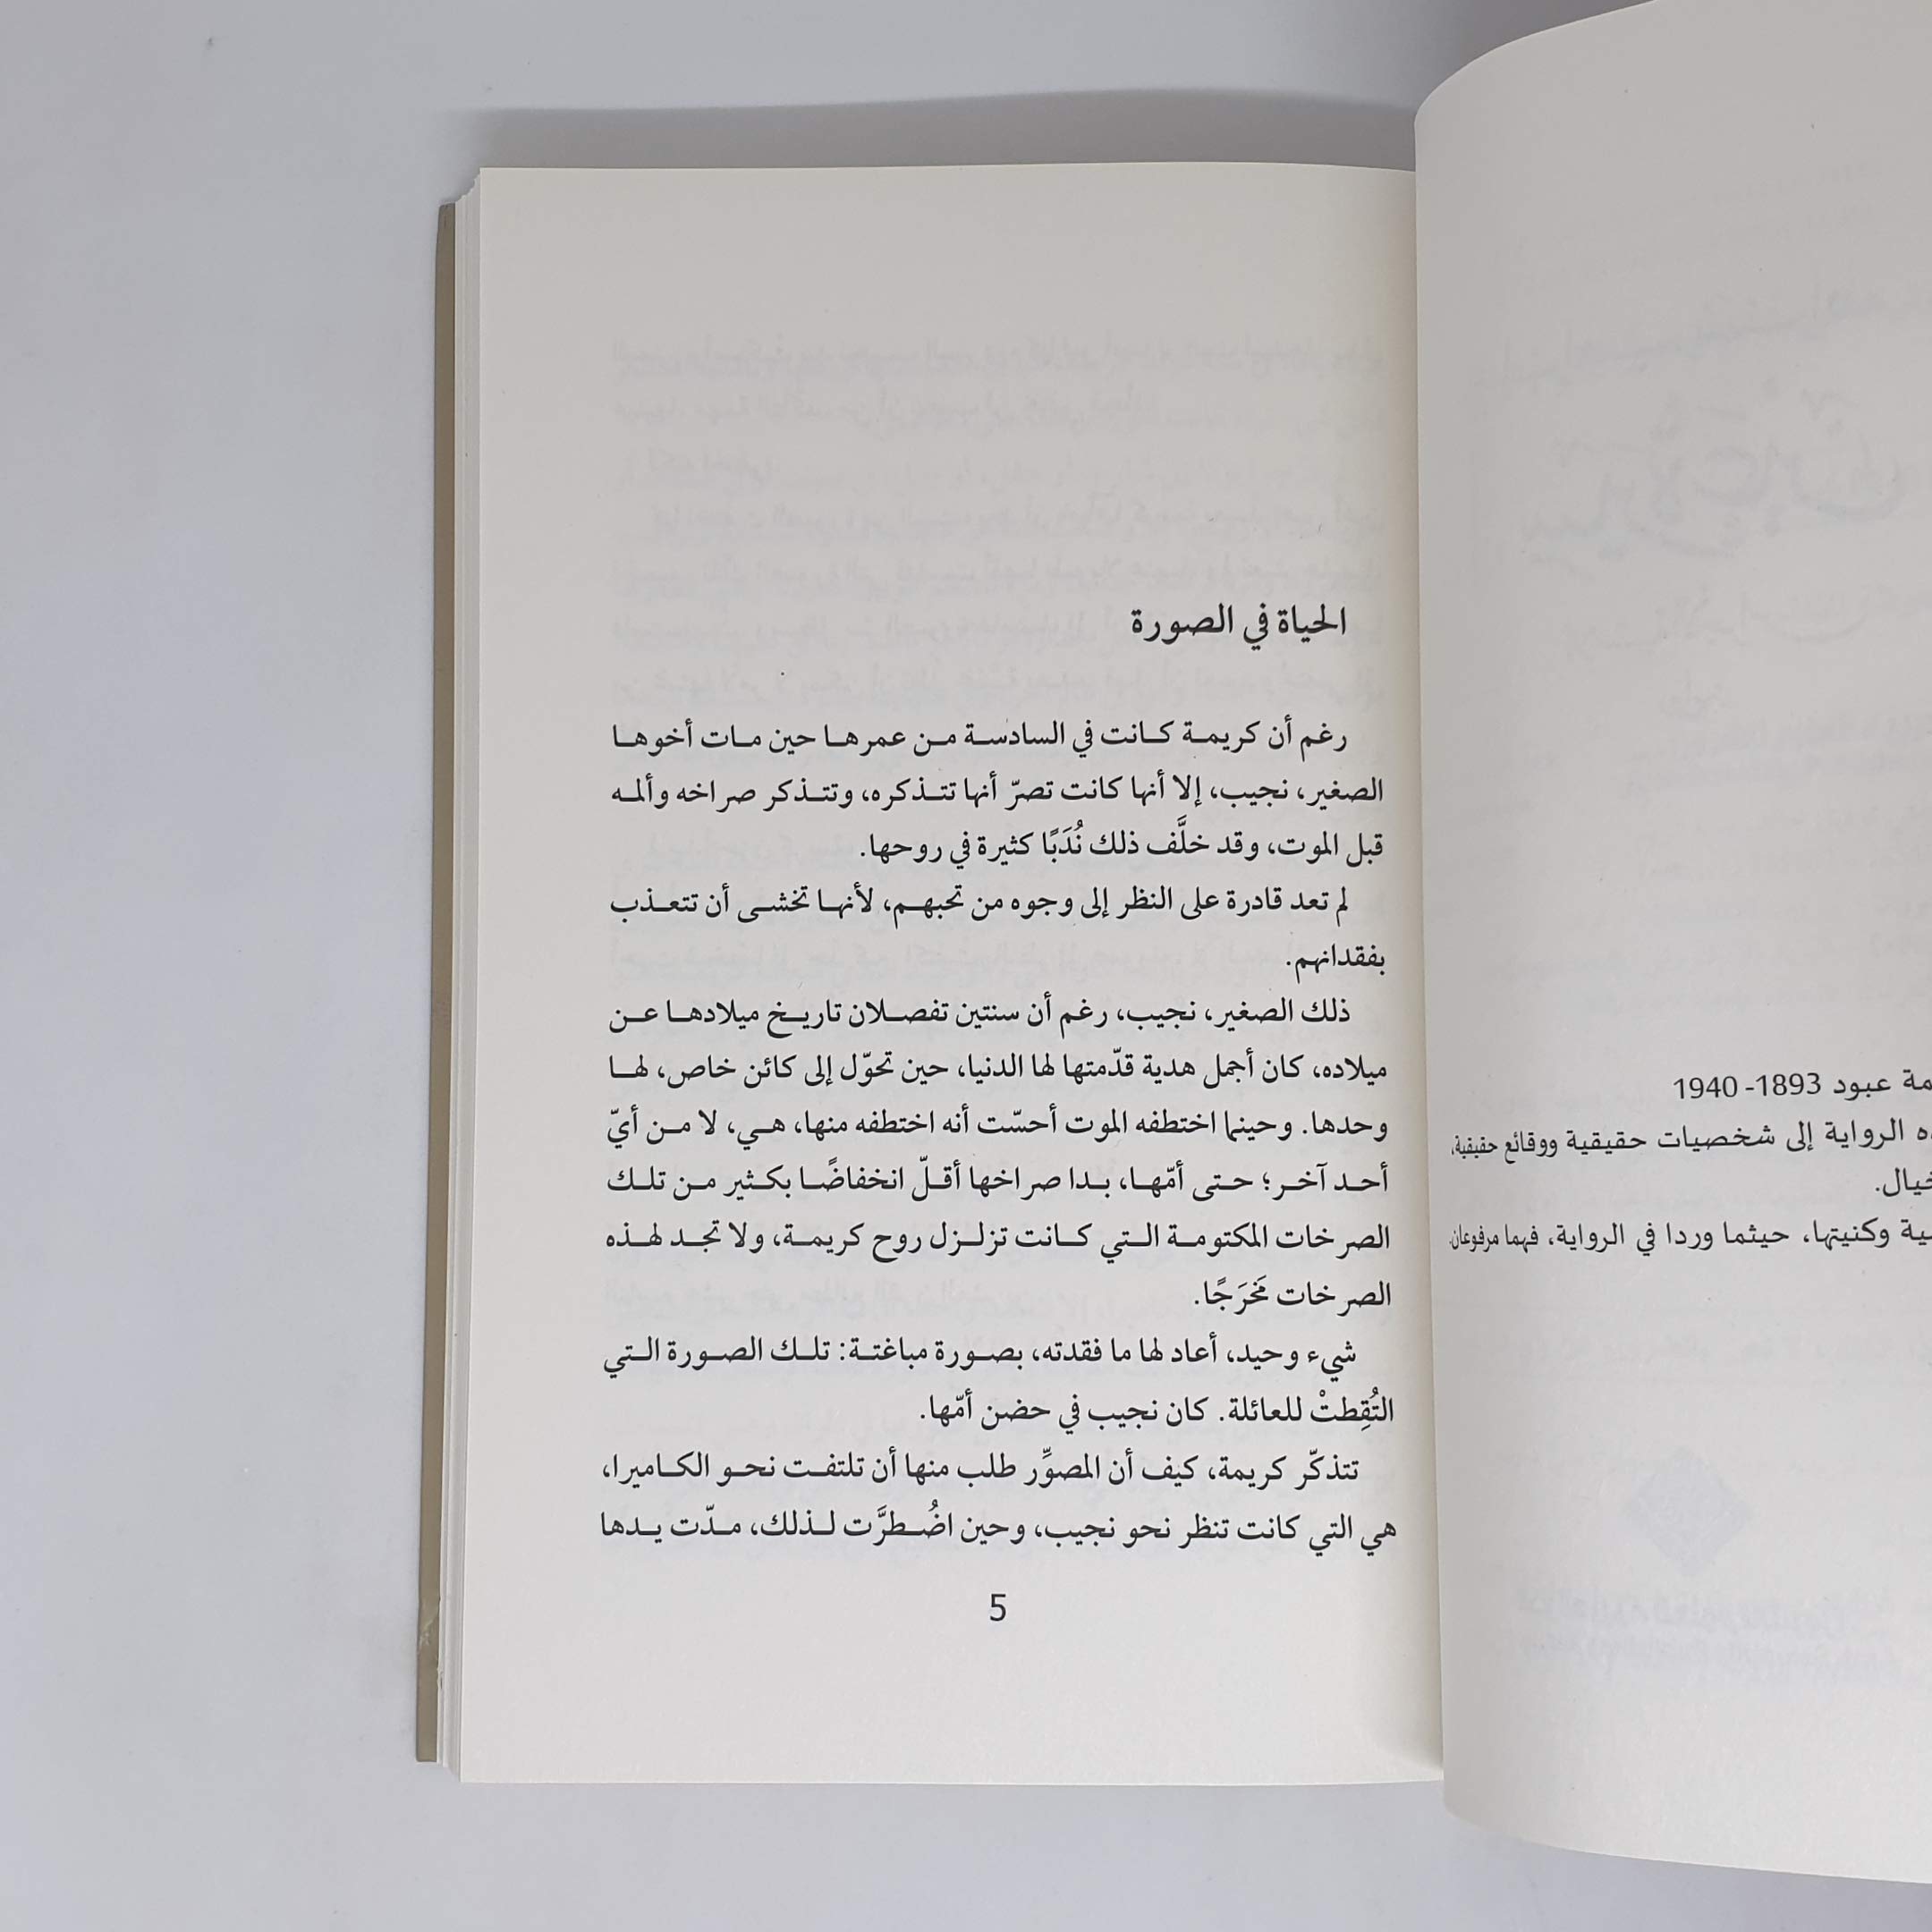 مة عبود 1893- 1940
ه الرواية إلى شخصيات حقيقية ووقائع حقيقية،
خيال.
ية وكنيتها، حيثما وردا في الرواية، فهما مرفوعان
الحياة في الصورة
رغم أن كريمة كانت في السادسة من عمرها حين مات أخوها
الصغير، نجيب، إلا أنها كانت تصرّ أنها تتذكره، وتتذكر صراخه وألمه
قبل الموت، وقد خلَّف ذلك نُدَبًا كثيرة في روحها.
لم تعد قادرة على النظر إلى وجوه من تحبهم، لأنها تخشى أن تتعذب
بفقدانهم.
ذلك الصغير، نجيب، رغم أن سنتين تفصلان تاريخ ميلادها عن
ميلاده، كان أجمل هدية قدّمتها لها الدنيا، حين تحوّل إلى كائن خاص، لها
وحدها. وحينما اختطفه الموت أحسّت أنه اختطفه منها، هي، لا من أيّ
أحد آخر؛ حتى أمّها، بدا صراخها أقلّ انخفاضًا بكثير من تلك
الصرخات المكتومة التي كانت تزلزل روح كريمة، ولا تجد لهذه
الصرخات مَخرَجًا.
شيء وحيد، أعاد لها ما فقدته، بصورة مباغتة: تلك الصورة التي
التُقِطتْ للعائلة. كان نجيب في حضن أمّها.
تتذكّر كريمة، كيف أن المصوِّر طلب منها أن تلتفت نحو الكاميرا،
هي التي كانت تنظر نحو نجيب، وحين اضُطرَّت لذلك، مدّت يدها
5